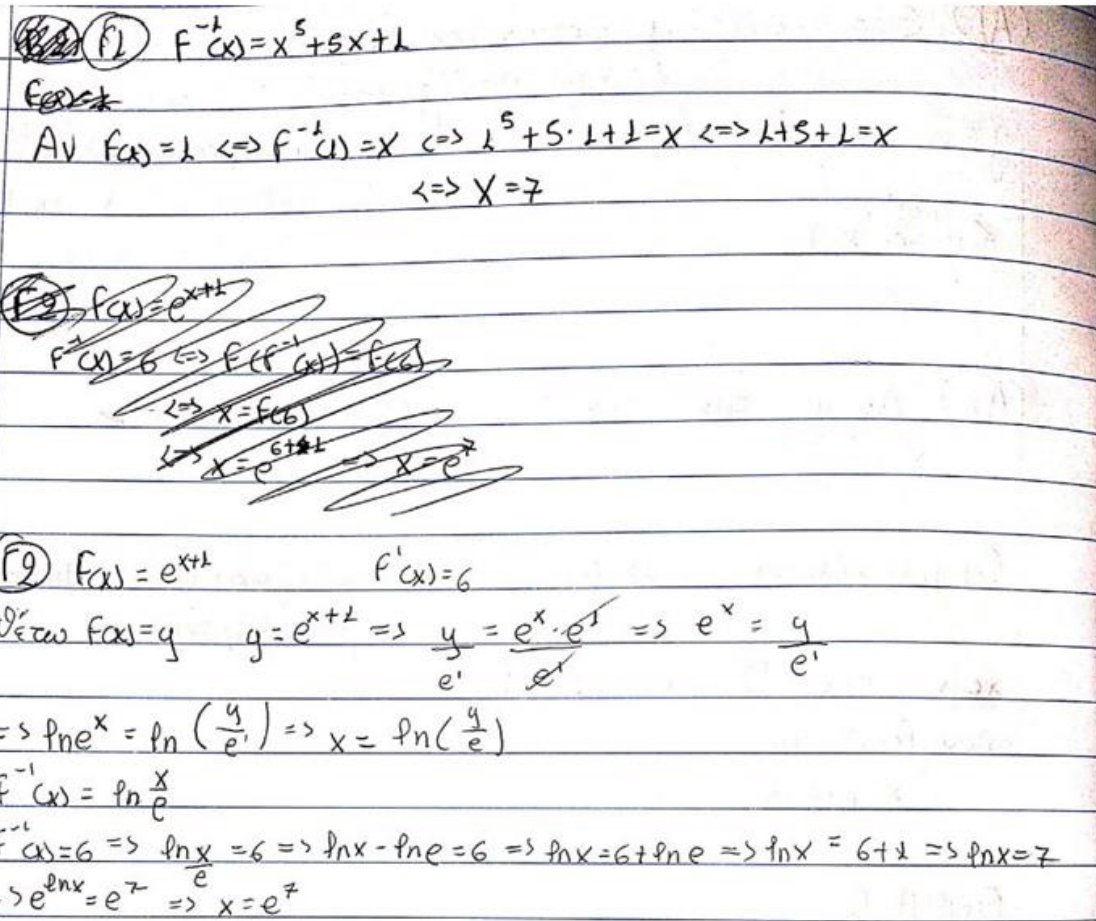 Γ1 F⁻¹(x) = x⁵+5x+1
Αν F(x) = 1 <=> f⁻¹(1) = x <=> 1⁵+5·1+1=x <=> 1+5+1=x
<=> x = 7
Γ2 f(x) = e^(x+1)
F⁻¹(x) = 6 <=> F(f⁻¹(x)) = F(6)
<=> x = F(6)
<=> x = e^(6+1) => x = e⁷
Γ2 F(x) = e^(x+1) f'(x) = 6
Θέτω F(x) = y y = e^(x+1) => y/e¹ = e^x·e¹/e¹ => e^x = y/e¹
=> ln e^x = ln (y/e¹) => x = ln(y/e)
F⁻¹(x) = ln x/e
F⁻¹(x)=6 => ln x/e = 6 => lnx - lne = 6 => lnx = 6+lne => lnx = 6+1 => lnx=7
=> e^(lnx) = e⁷ => x = e⁷